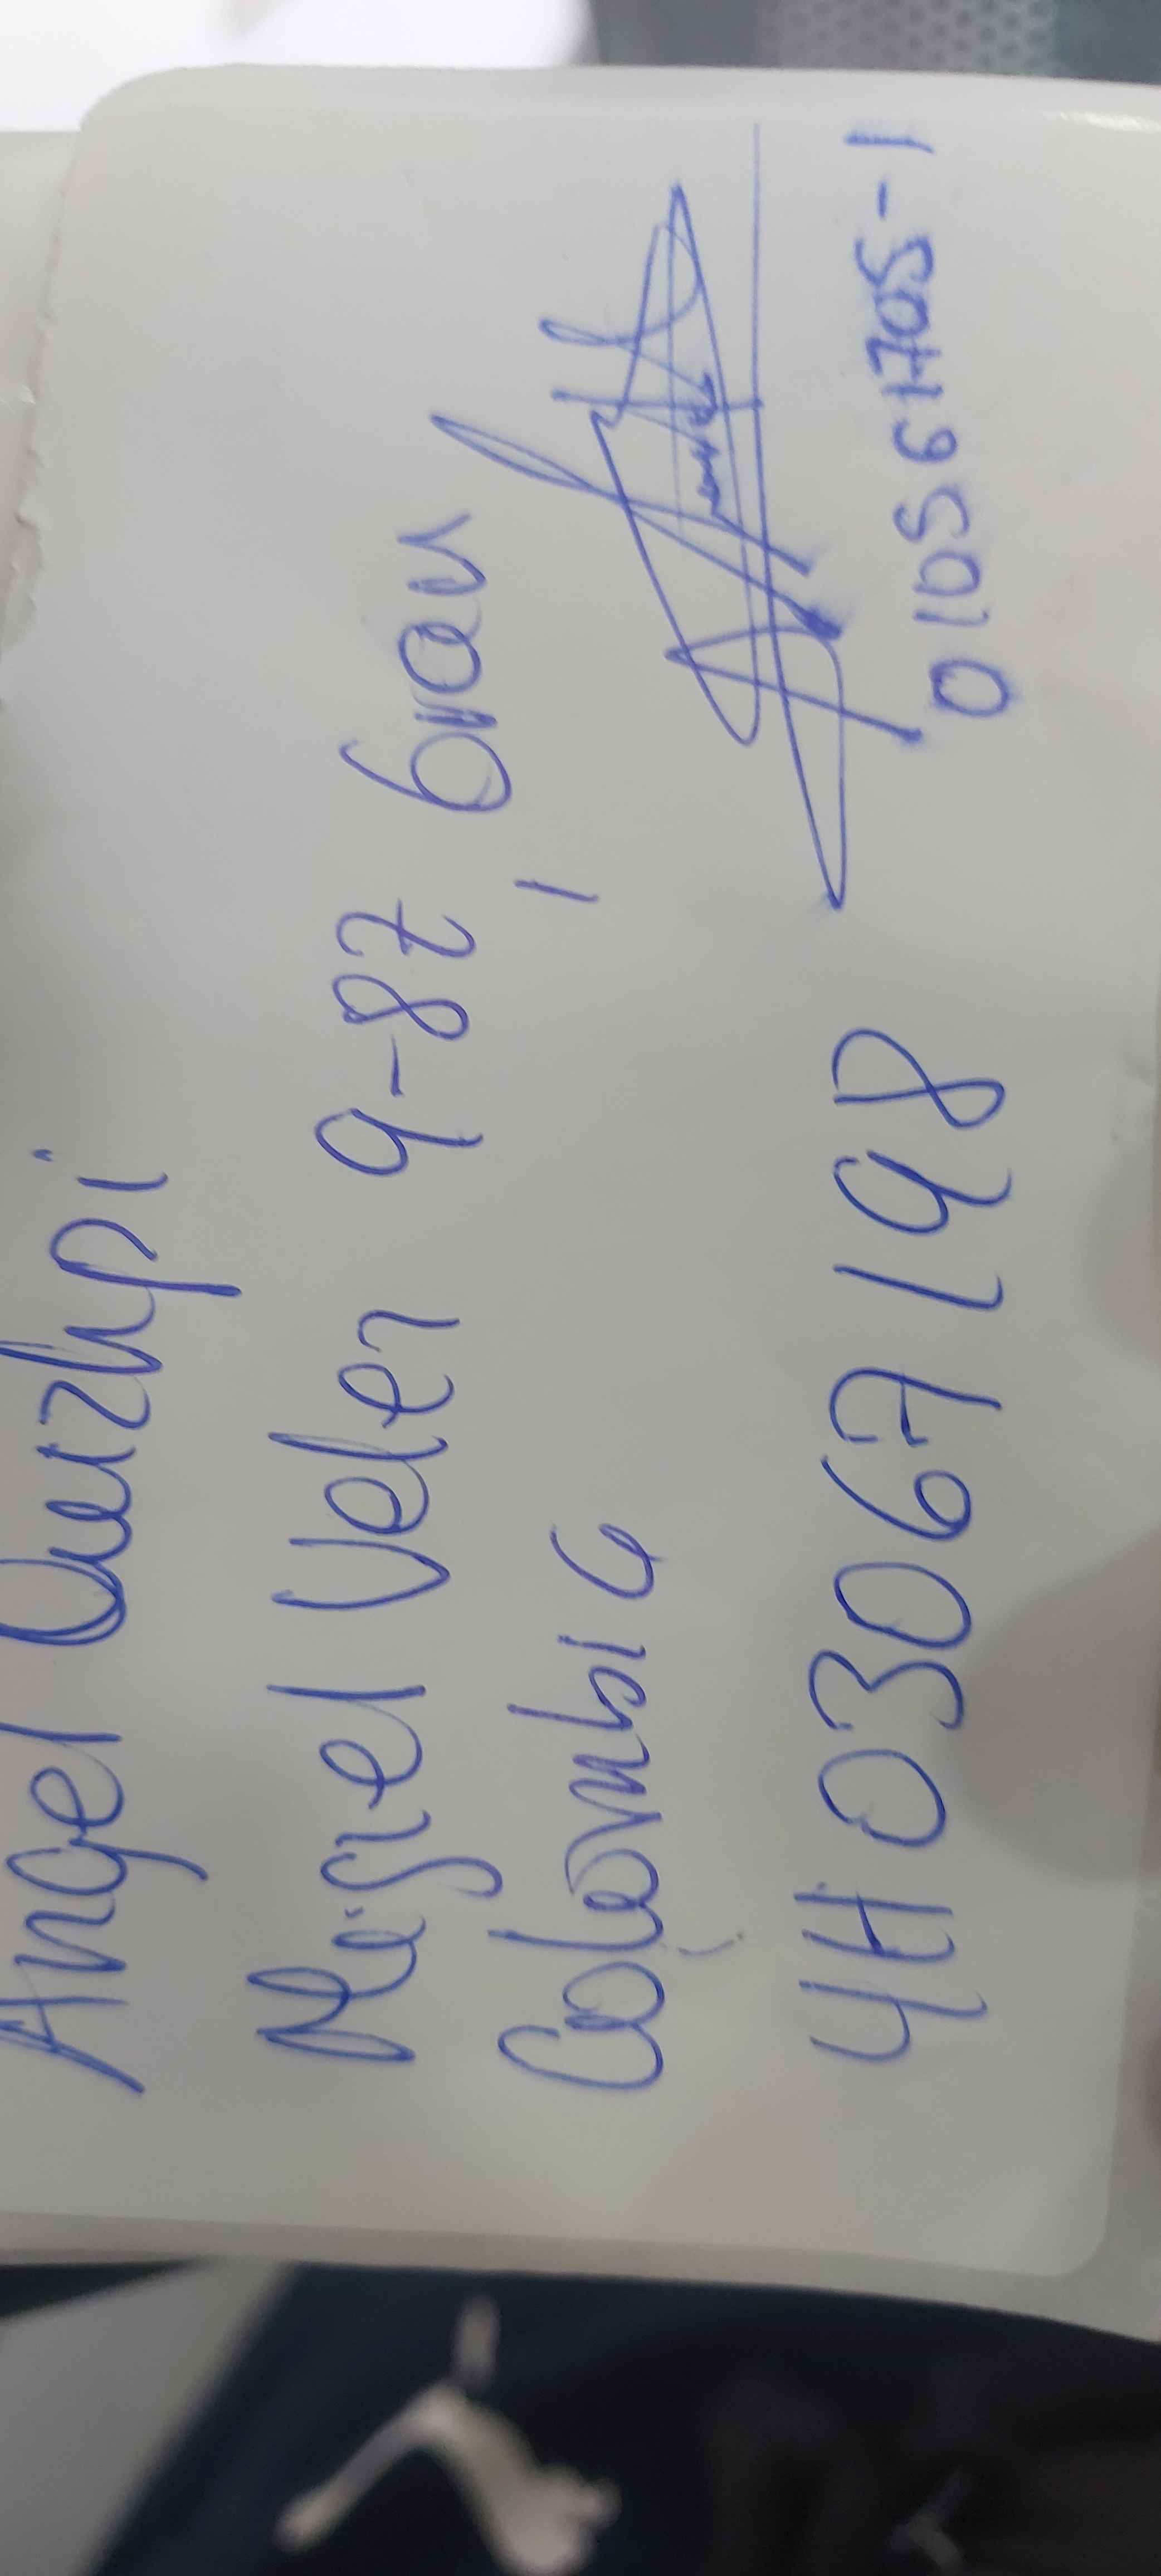 Angel Quizhpi
Miguel Velez 9-87 Gran
Colombia
4H03067198
010596705-1